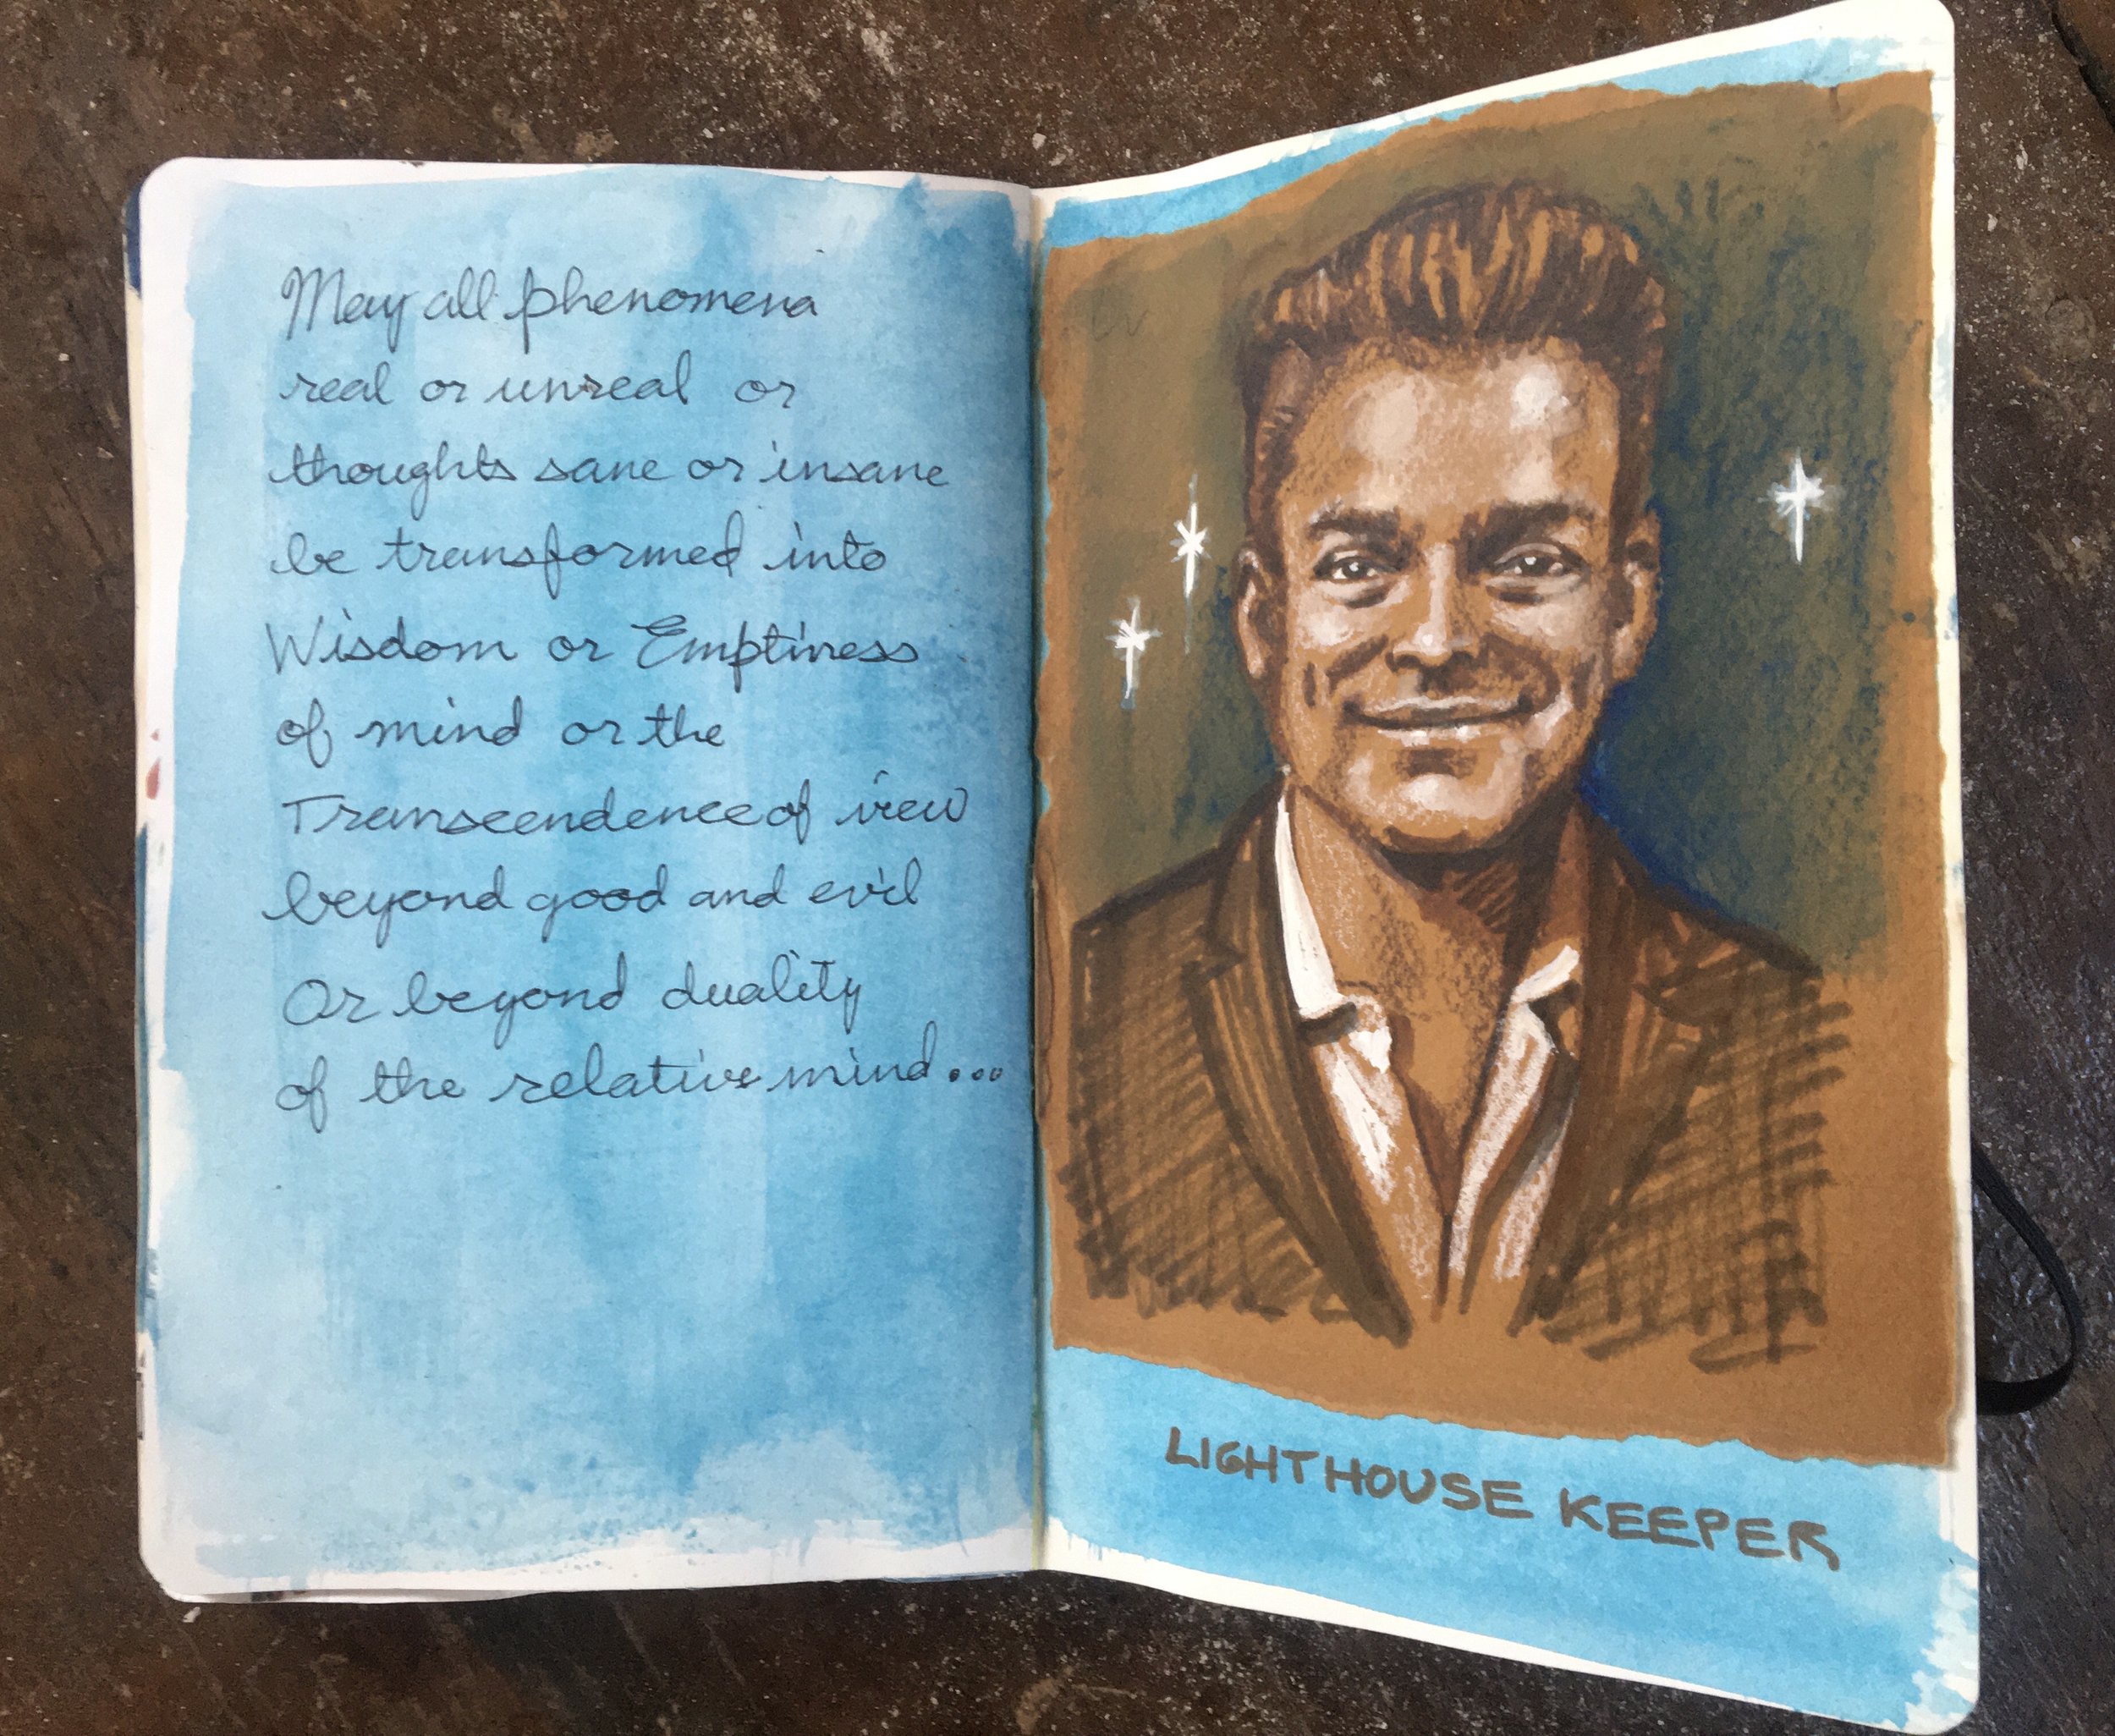 May all phenomena
real or unreal or
thoughts sane or insane
be transformed into
Wisdom or Emptiness
of mind or the
Transcendence of view
beyond good and evil
Or beyond duality
of the relative mind...
LIGHTHOUSE KEEPER